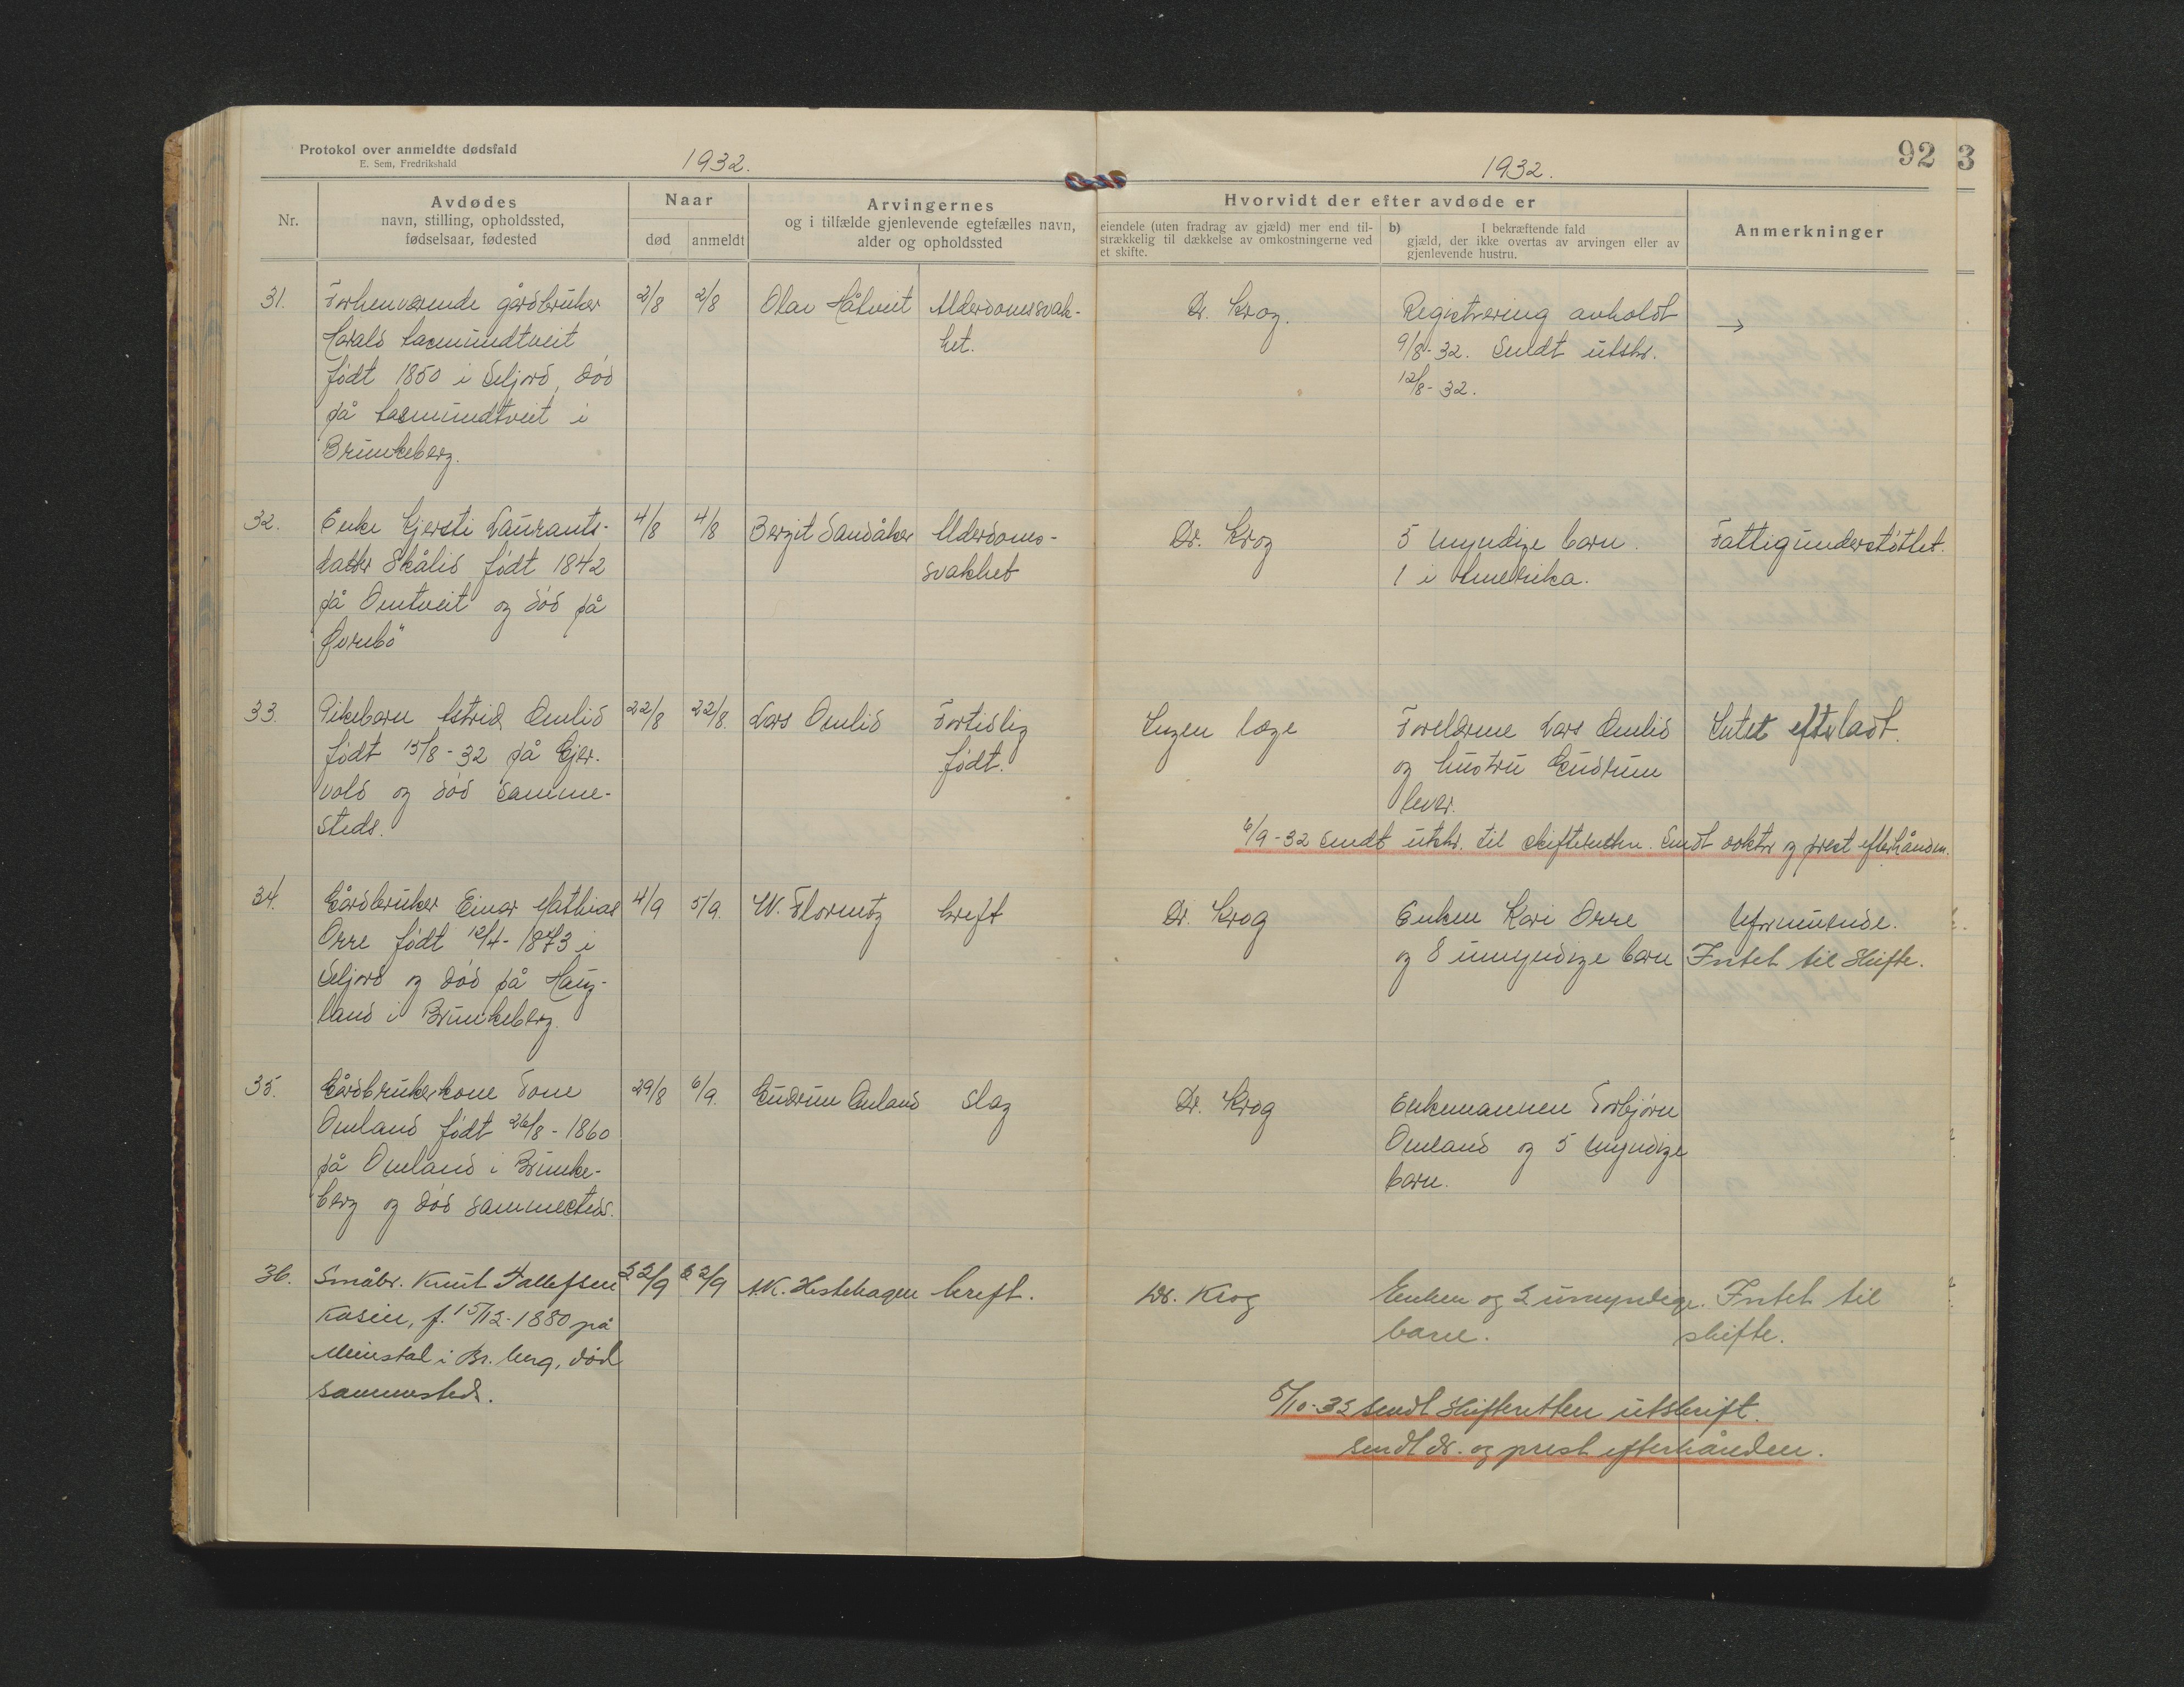 Protokol over anmeldte dødsfald
E. Sem, Fredrikshald
1932.
1932.
92
3
Nr.
Avdødes
navn, stilling, opholdssted,
fødselsaar, fødested
Naar
død
anmeldt
Arvingernes
og i tilfælde gjenlevende egtefælles navn,
alder og opholdssted
Hvorvidt der efter avdøde er
eiendele (uten fradrag av gjæld) mer end til-
strækkelig til dækkelse av omkostningerne ved
et skifte.
b) I bekræftende fald
gjæld, der ikke overtas av arvingen eller av
gjenlevende hustru.
Anmerkninger
31. Forhenværende gårdbruker 2/8 2/8 Olav Håtveit Alderdomssvak- Dr. Krog. Registrering avholdt →
Harald Aasmundtveit het. 9/8-32. Sendt utskr.
født 1850 i Seljord, død 12/8-32.
på Aasmundtveit i
Brunkeberg.
32. Enke Gjersti Laurants- 4/8 4/8 Bergit Sandåker Alderdoms- Dr. Krog 5 myndige barn. Fattigunderstøttet.
datter Skålid født 1842 svakhet 1 i Amerika.
på Omtveit og død på
"Øvrebø"
33. Pikebarn Astrid Omlid 22/8 22/8. Lars Omlid Fortidlig Ingen læge Foreldrene Lars Omlid Intet efterladt.
født 15/8-32 på Gjer- født. og hustru Gudrun
vold og død samme- lever.
steds.
6/9-32 sendt utskr. til skifteretten. Sendt doktor og prest efterhånden.
34. Gårdbruker Einar Mathias 4/9 5/9. W. Florentz kreft Dr. Krog Enken Kari Orre Uformuende.
Orre født 12/4-1873 i og 8 umyndige barn Intet til skifte.
Seljord og død på Haug-
land i Brunkeberg.
35. Gårdbrukerkone Tone 29/8 6/9. Gudrun Omland slag Dr. Krog Enkemannen Torbjørn
Omland født 26/8-1860 Omland og 5 myndige
på Omland i Brunke- barn.
berg og død sammesteds.
36. Småbr. Knut Tallefsen 22/9 22/9 A.K. Hestehagen kreft. Dr. Krog Enken og 2 umyndige Intet til
Kasin, f. 15/12-1880 på barn. skifte.
i Br.berg, død
sammesteds.
5/10-32 sendt skifteretten utskrift.
sendt dr. og prest efterhånden.